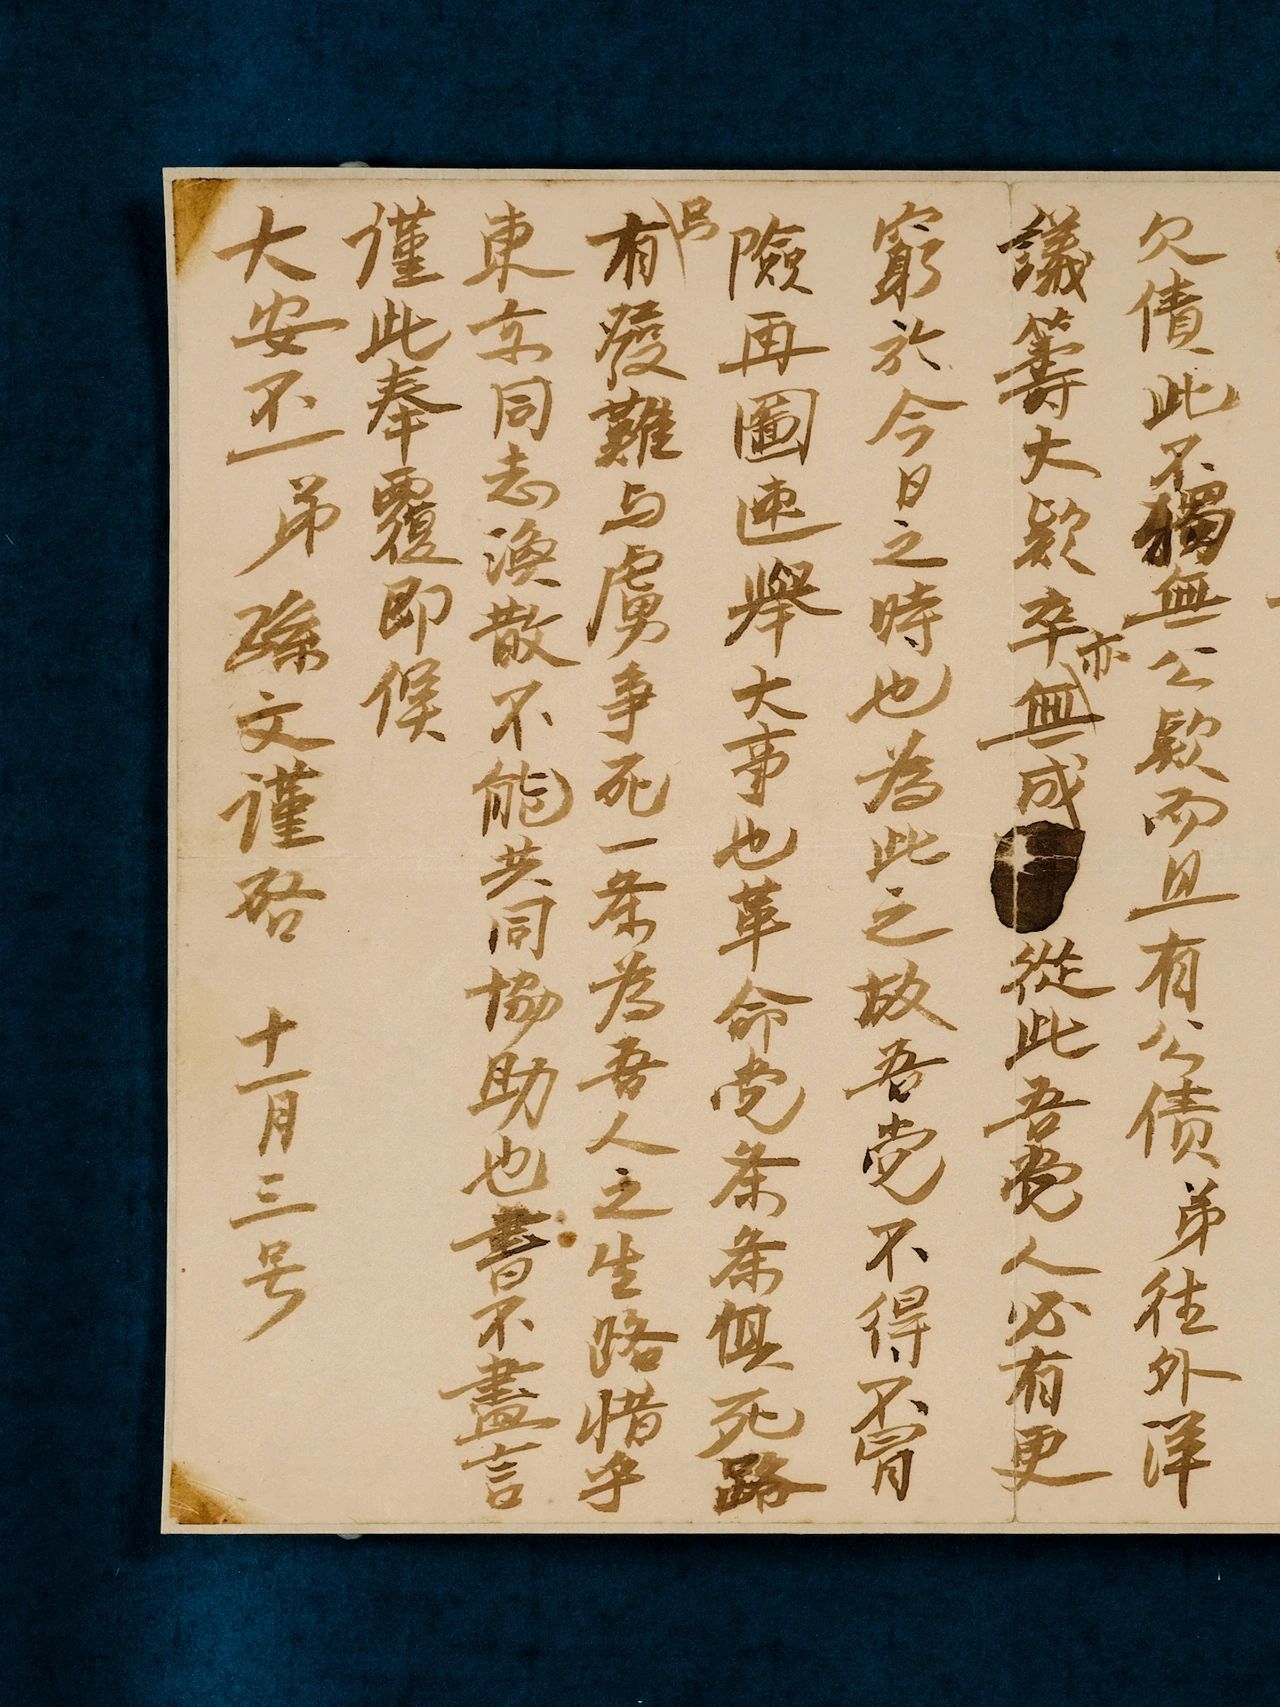 欠債此不獨無公款而且有公債弟往外洋
議籌大款卒亦無成從此吾党人必有更
窮於今日之時也為此之故吾党不得不冒
險再圖速舉大事也革命党条条俱死路
只有發難与虜爭死一条為吾人之生路惜乎
東京同志渙散不能共同協助也書不盡言
謹此奉覆即候
大安不一 弟 孫文謹啓 十一月三号